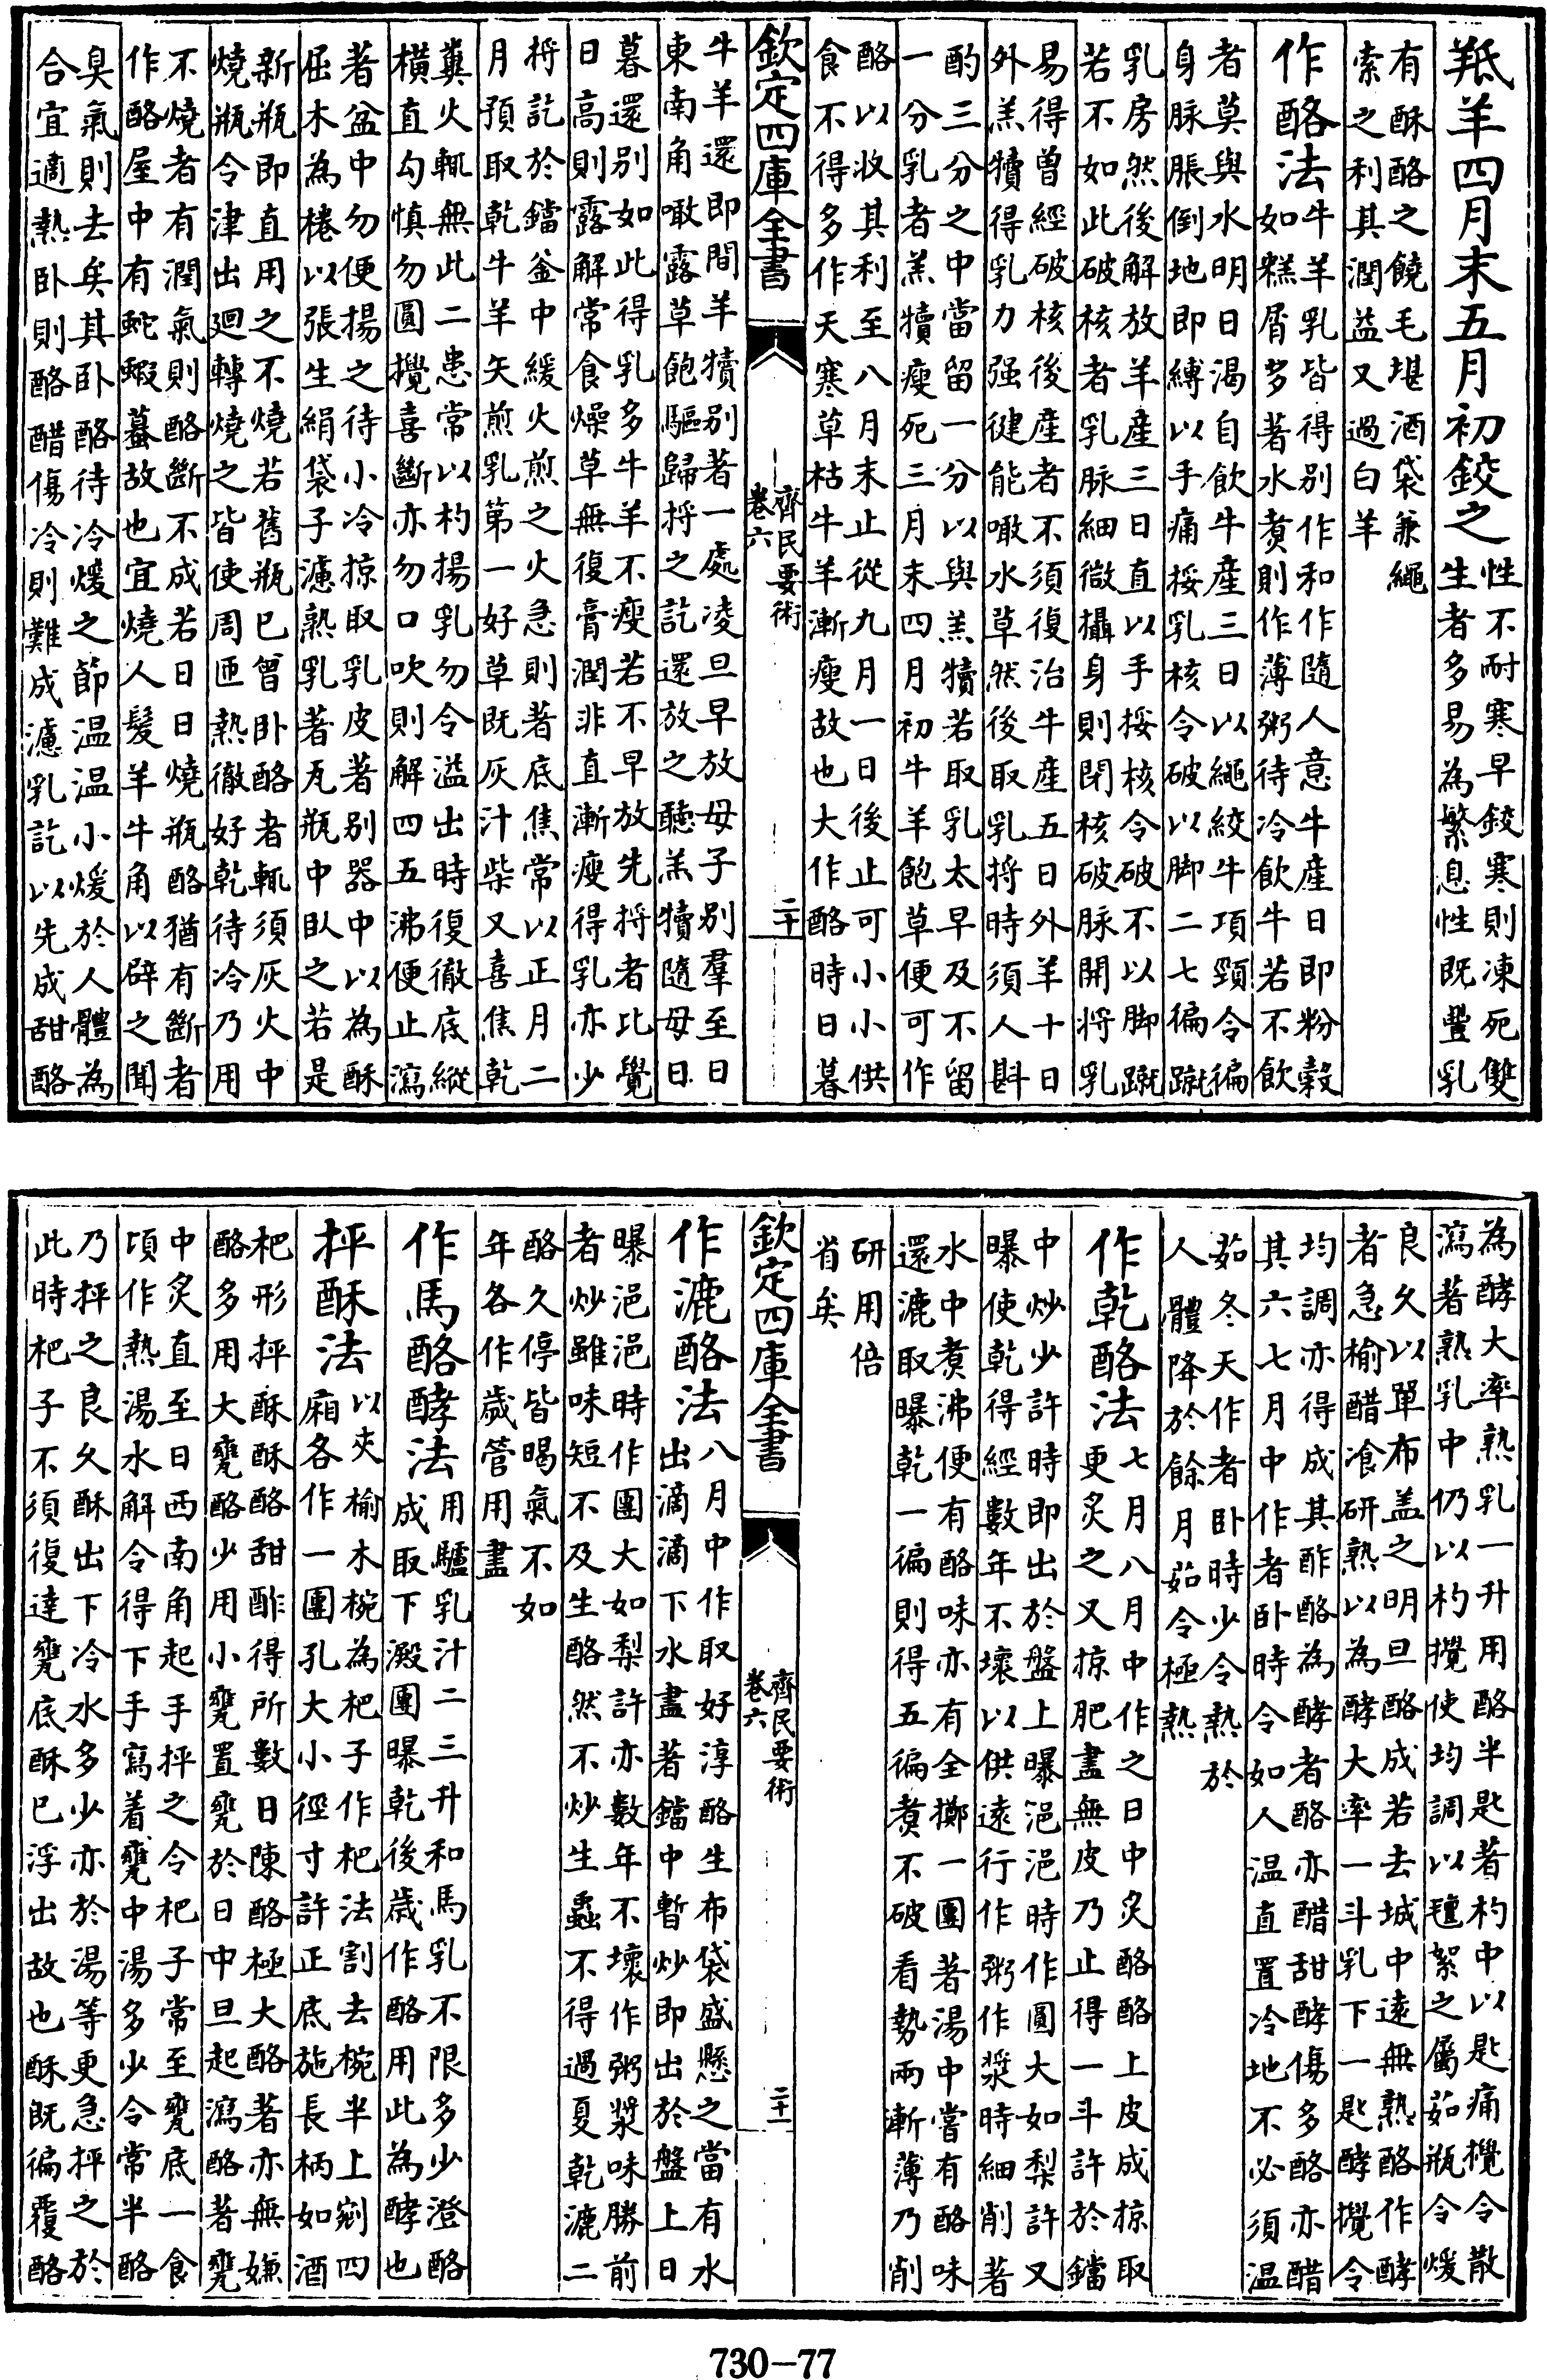 羝羊四月末五月初鉸之
性不耐寒早鉸寒則凍死雙
生者多易為繁息性既豐乳
有酥酪之饒毛堪酒袋兼繩
索之利其潤益又過白羊
作酪法
牛羊乳皆得別作和作隨人意牛產日即粉穀
如糕屑多著水煑則作薄粥待冷飲牛若不飲
者莫與水明日渴自飲牛產三日以繩絞牛項頸令徧
身脉脹倒地即縛以手痛挼乳核令破以脚二七徧蹴
乳房然後解放羊產三日直以手挼核令破不以脚蹴
若不如此破核者乳脉細微攝身則閉核破脉開捋乳
易得曾經破核後產者不須復治牛產五日外羊十日
外羔犢得乳力强徤能噉水草然後取乳捋時須人斟
酌三分之中當留一分以與羔犢若取乳太早及不留
一分乳者羔犢瘦死三月末四月初牛羊飽草便可作
酪以收其利至八月末止從九月一日後止可小小供
食不得多作天寒草枯牛羊漸瘦故也大作酪時日暮
欽定四庫全書
齊民要術
卷六
二十
牛羊還即間羊犢別著一處凌旦早放母子別羣至日
東南角噉露草飽驅歸捋之訖還放之聽羔犢隨母日
暮還別如此得乳多牛羊不瘦若不早放先捋者比覺
日高則露解常食燥草無復膏潤非直漸瘦得乳亦少
捋訖於鐺釜中緩火煎之火急則著底焦常以正月二
月預取乾牛羊矢煎乳第一好草既灰汁柴又喜焦乾
糞火輒無此二患常以杓揚乳勿令溢出時復徹底縱
橫直勾慎勿圓攪喜斷亦勿口吹則解四五沸便止瀉
著盆中勿便揚之待小冷掠取乳皮著別器中以為酥
屈木為棬以張生絹袋子濾熟乳著瓦瓶中臥之若是
新瓶即直用之不燒若舊瓶已曾卧酪者輒須灰火中
燒瓶令津出廻轉燒之皆使周匝熱徹好乾待冷乃用
不燒者有潤氣則酪斷不成若日日燒瓶酪猶有斷者
作酪屋中有蛇蝦蟇故也宜燒人髮羊牛角以辟之聞
臭氣則去矣其卧酪待冷煖之節温温小煖於人體為
合宜適熱卧則酪醋傷冷則難成濾乳訖以先成甜酪
為酵大率熟乳一升用酪半匙著杓中以匙痛攪令散
瀉著熟乳中仍以杓攪使均調以氊絮之屬茹瓶令煖
良久以單布盖之明旦酪成若去城中遠無熟酪作酵
者急榆醋飡研熟以為酵大率一斗乳下一匙酵攪令
均調亦得成其酢酪為酵者酪亦醋甜酵傷多酪亦醋
其六七月中作者卧時令如人温直置冷地不必須温
茹冬天作者卧時少令熱於
人體降於餘月茹令極熱
作乾酪法
七月八月中作之日中炙酪酪上皮成掠取
更炙之又掠肥盡無皮乃止得一斗許於鐺
中炒少許時即出於盤上曝浥浥時作圓大如梨許又
曝使乾得經數年不壞以供遠行作粥作漿時細削著
水中煑沸便有酪味亦有全擲一團著湯中嘗有酪味
還漉取曝乾一徧則得五徧煑不破看勢兩漸薄乃削
研用倍
省矣
欽定四庫全書
齊民要術
卷六
二十一
作漉酪法
八月中作取好淳酪生布袋盛懸之當有水
出滴滴下水盡著鐺中暫炒即出於盤上日
曝浥浥時作團大如梨許亦數年不壞作粥漿味勝前
者炒雖味短不及生酪然不炒生蟲不得過夏乾漉二
酪久停皆暍氣不如
年各作歲管用盡
作馬酪酵法
用驢乳汁二三升和馬乳不限多少澄酪
成取下澱團曝乾後歲作酪用此為酵也
抨酥法
以夾榆木椀為杷子作杷法割去椀半上剜四
廂各作一團孔大小徑寸許正底施長柄如酒
杷形抨酥酥酪甜酢得所數日陳酪極大酪著亦無嫌
酪多用大甕酪少用小甕置甕於日中旦起瀉酪著甕
中炙直至日西南角起手抨之令杷子常至甕底一食
頃作熱湯水解令得下手寫着甕中湯多少令常半酪
乃抨之良久酥出下冷水多少亦於湯等更急抨之於
此時杷子不須復達甕底酥已浮出故也酥既徧覆酪
730—77